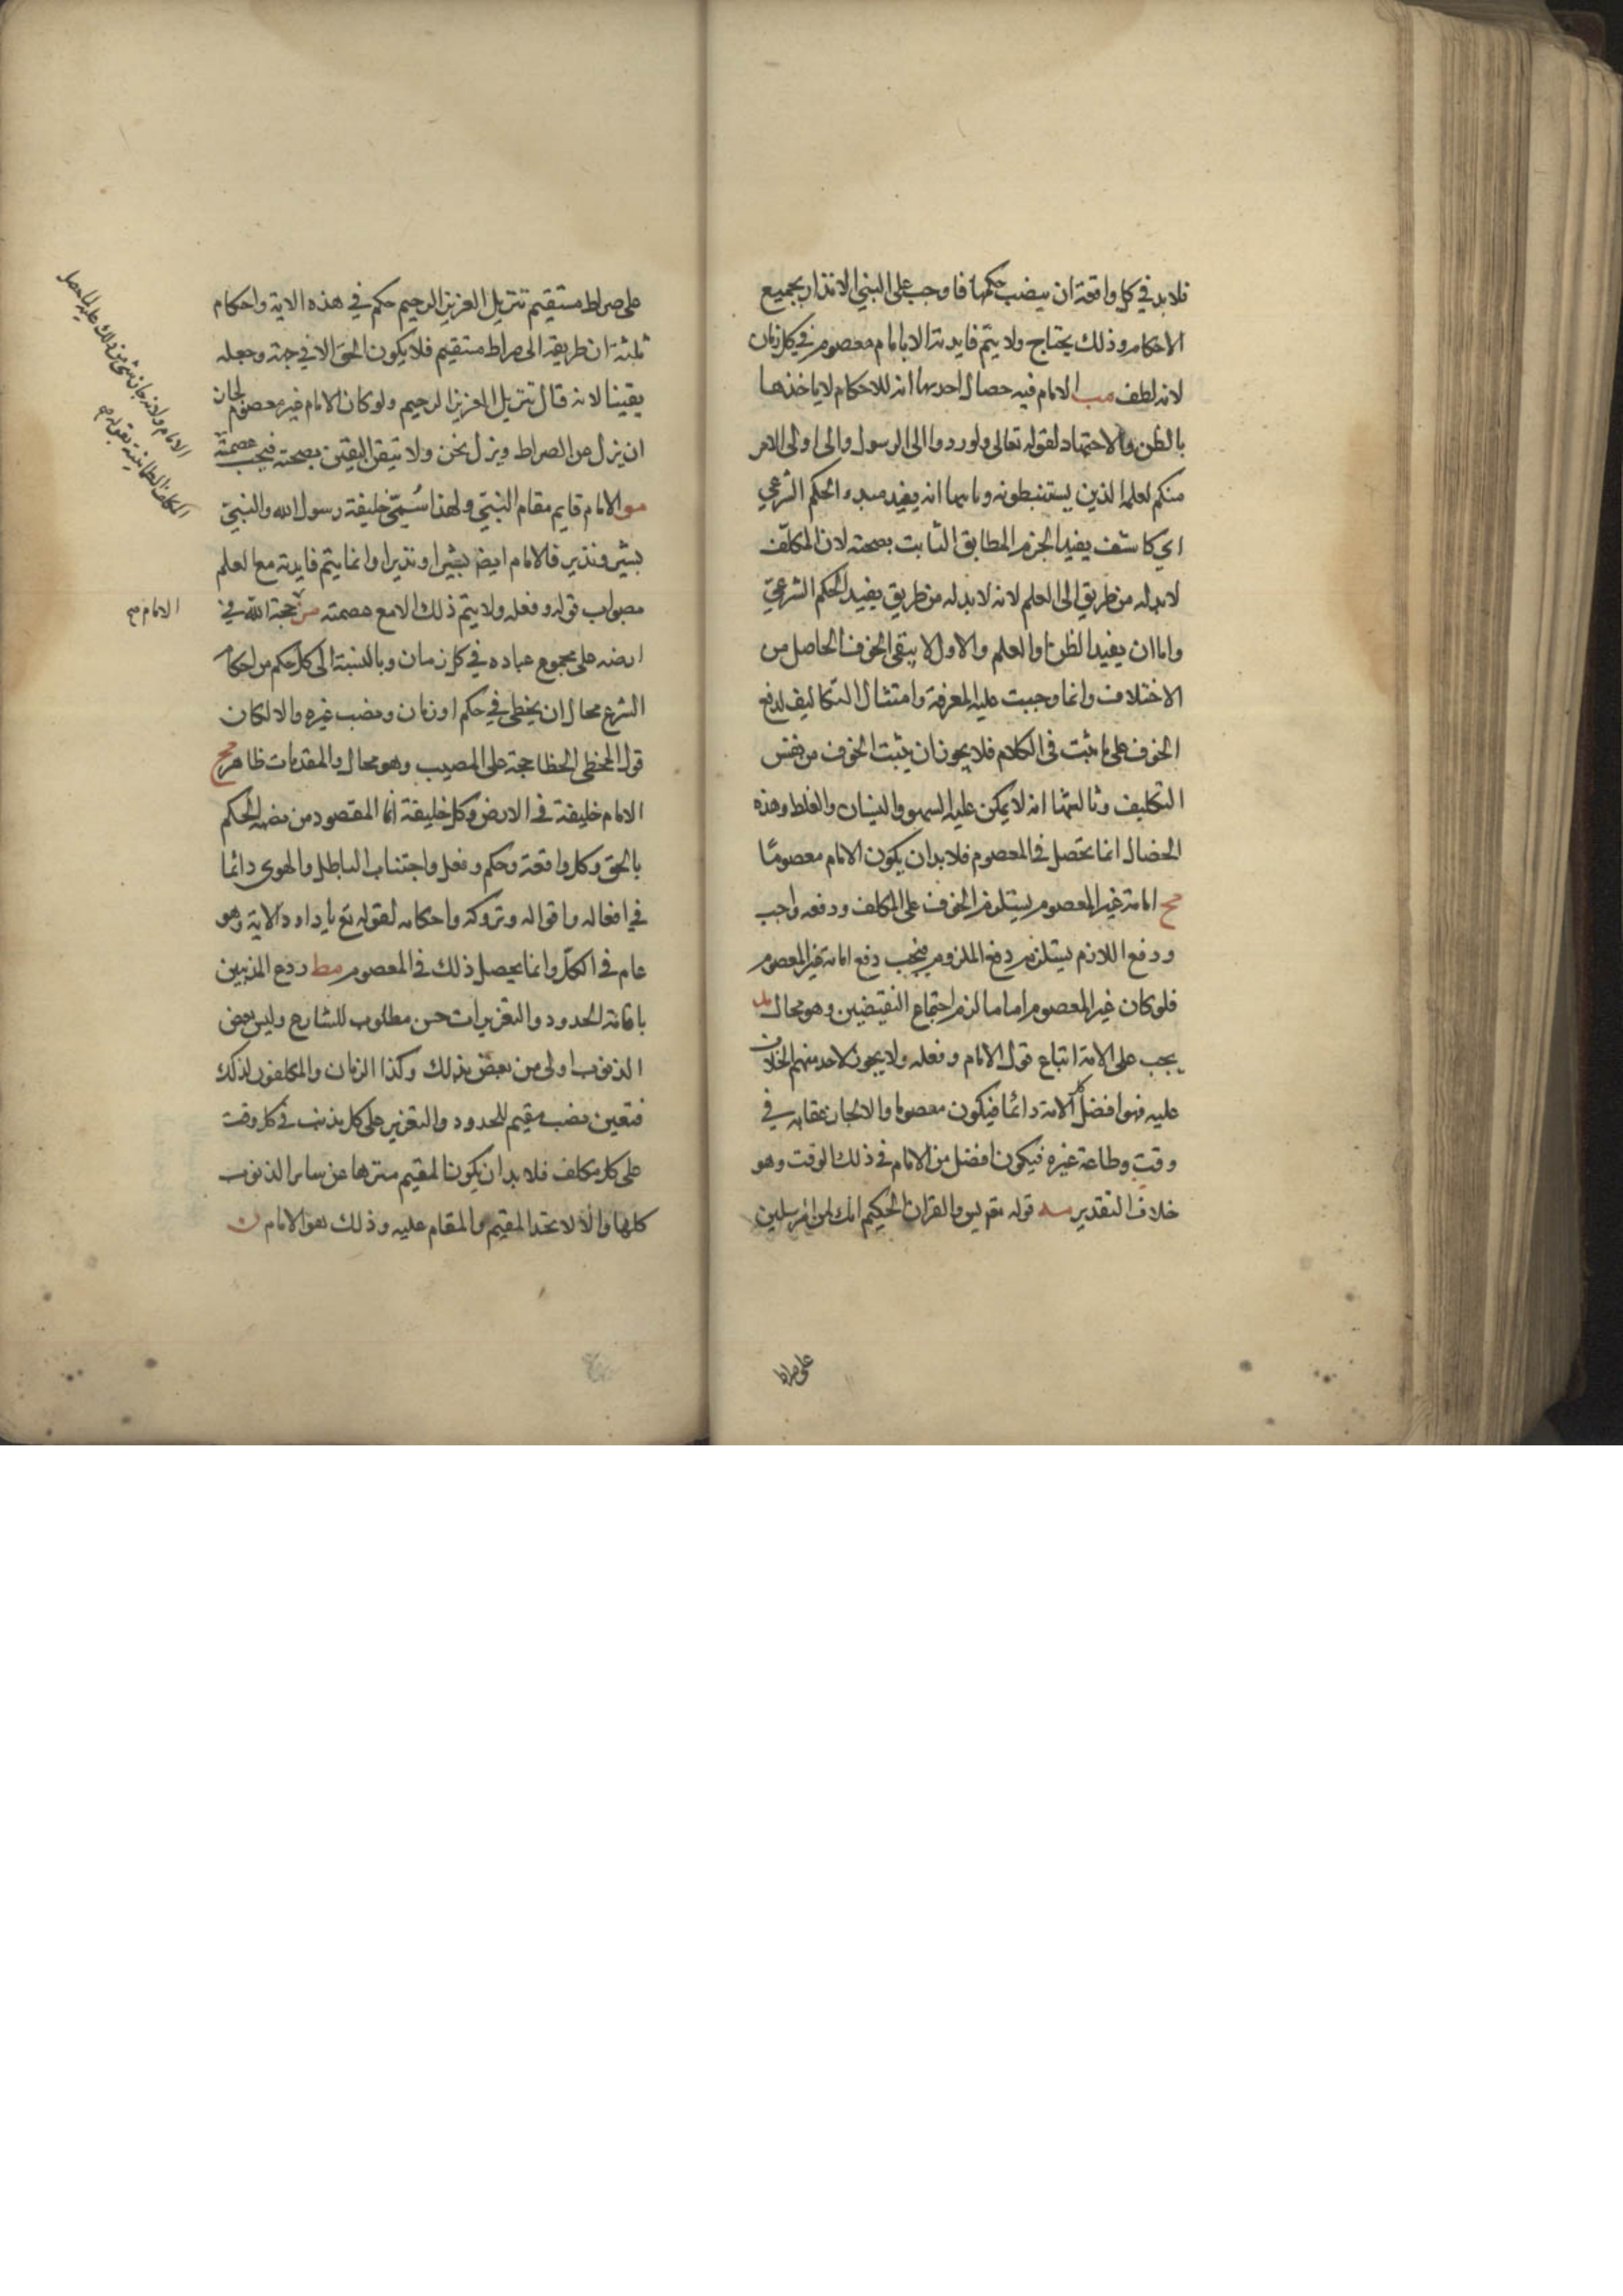 فلابد في كل واقعة ان ينصب حكمها فاوجب على النبي الانذار بجميع
الاحكام وذلك يحتاج ولا يتم فايدته الا بامام معصوم في كل زمان
لانه لطف مب الامام فيه خصال احديها انه للاحكام لا ياخذها
بالظن والاجتهاد لقوله تعالى ولو ردوا الى الرسول والى اولى الامر
منكم لعلمه الذين يستنبطونه وثانيها انه يفيد مبدء الحكم الشرعي
اي كاشف يفيد الجزم المطابق الثابت بصحته لان المكلف
لابد له من طريق الى العلم لانه لابد له من طريق يفيد الحكم الشرعي
واما ان يفيد الظن او العلم والاول لا يبقى الخوف الحاصل من
الاختلاف وانما وجبت عليه المعرفة وامتثال التكاليف لدفع
الخوف على ما ثبت في الكلام فلا يجوز ان يثبت الخوف من نفس
التكليف وثالثها انه لا يمكن عليه السهو والنسيان والغلط وهذه
الخصال انما تحصل في المعصوم فلابد ان يكون الامام معصوما
مج امامة غير المعصوم يستلزم الخوف على المكلف ودفعه واجب
ودفع اللازم يستلزم دفع الملزوم فيجب دفع امامة غير المعصوم
فلو كان غير المعصوم اماما لزم اجتماع النقيضين وهو محال مد
يجب على الامة اتباع قول الامام وفعله ولا يجوز لاحد منهم الخلاف
عليه فهو افضل كل الامة دائما فيكون معصوما والا لجاز عقابه في
وقت وطاعة غيره فيكون افضل من الامام في ذلك الوقت وهو
خلاف التقدير مه قوله تع يس والقران الحكيم انك لمن المرسلين
على صراط
على صراط مستقيم تنزيل العزيز الرحيم حكم في هذه الاية واحكام
ثلثة ان طريقه الى صراط مستقيم فلا يكون الحق الا في جهة وجعله
يقينا لانه قال تنزيل العزيز الرحيم ولو كان الامام غير معصوم لجاز
ان يزل عن الصراط ونزل نحن ولا تيقن اليقين بصحته فيجب عصمته
مو الامام قايم مقام النبي ولهذا سُمّي خليفة رسول الله والنبي
بشير ونذير فالامام ايضا بشيرا ونذيرا وانما يتم فايدته مع العلم
بصواب قوله وفعله ولا يتم ذلك الا مع عصمته مز حجة الله في
الامام صح
ارضه على مجموع عباده في كل زمان وبالنسبة الى كل حكم من احكام
الشرع محال ان يخطى في حكم او زمان ونصب غيره والا لكان
قول المخطى الخطا حجة على المصيب وهو محال والمقدمات ظاهر مح
الامام خليفة في الارض وكل خليفة انما المقصود من نصبه الحكم
بالحق وكل واقعة وحكم وفعل واجتناب الباطل والهوى دائما
في افعاله واقواله وتروكه واحكامه لقوله تع يا داود الاية وهو
عام في الكل وانما يحصل ذلك في المعصوم مط ردع المذنبين
باقامة الحدود والتعزيرات حسن مطلوب للشارع وليس بعض
الذنوب اولى من بعض بذلك وكذا الزمان والمكلفون لذلك
فتعين نصب مقيم للحدود والتعزير على كل ذنب في كل وقت
على كل مكلف فلابد ان يكون المقيم منزها عن ساير الذنوب
كلها والا لاتحد المقيم والمقام عليه وذلك هو الامام ن